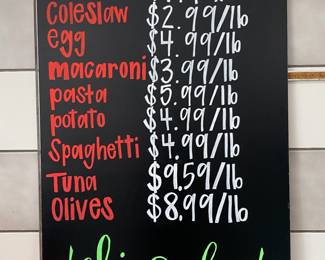 Coleslaw $2.99/lb
egg $4.99/lb
macaroni $3.99/lb
pasta $5.99/lb
potato $4.99/lb
Spaghetti $4.99/lb
Tuna $9.59/lb
Olives $8.99/lb